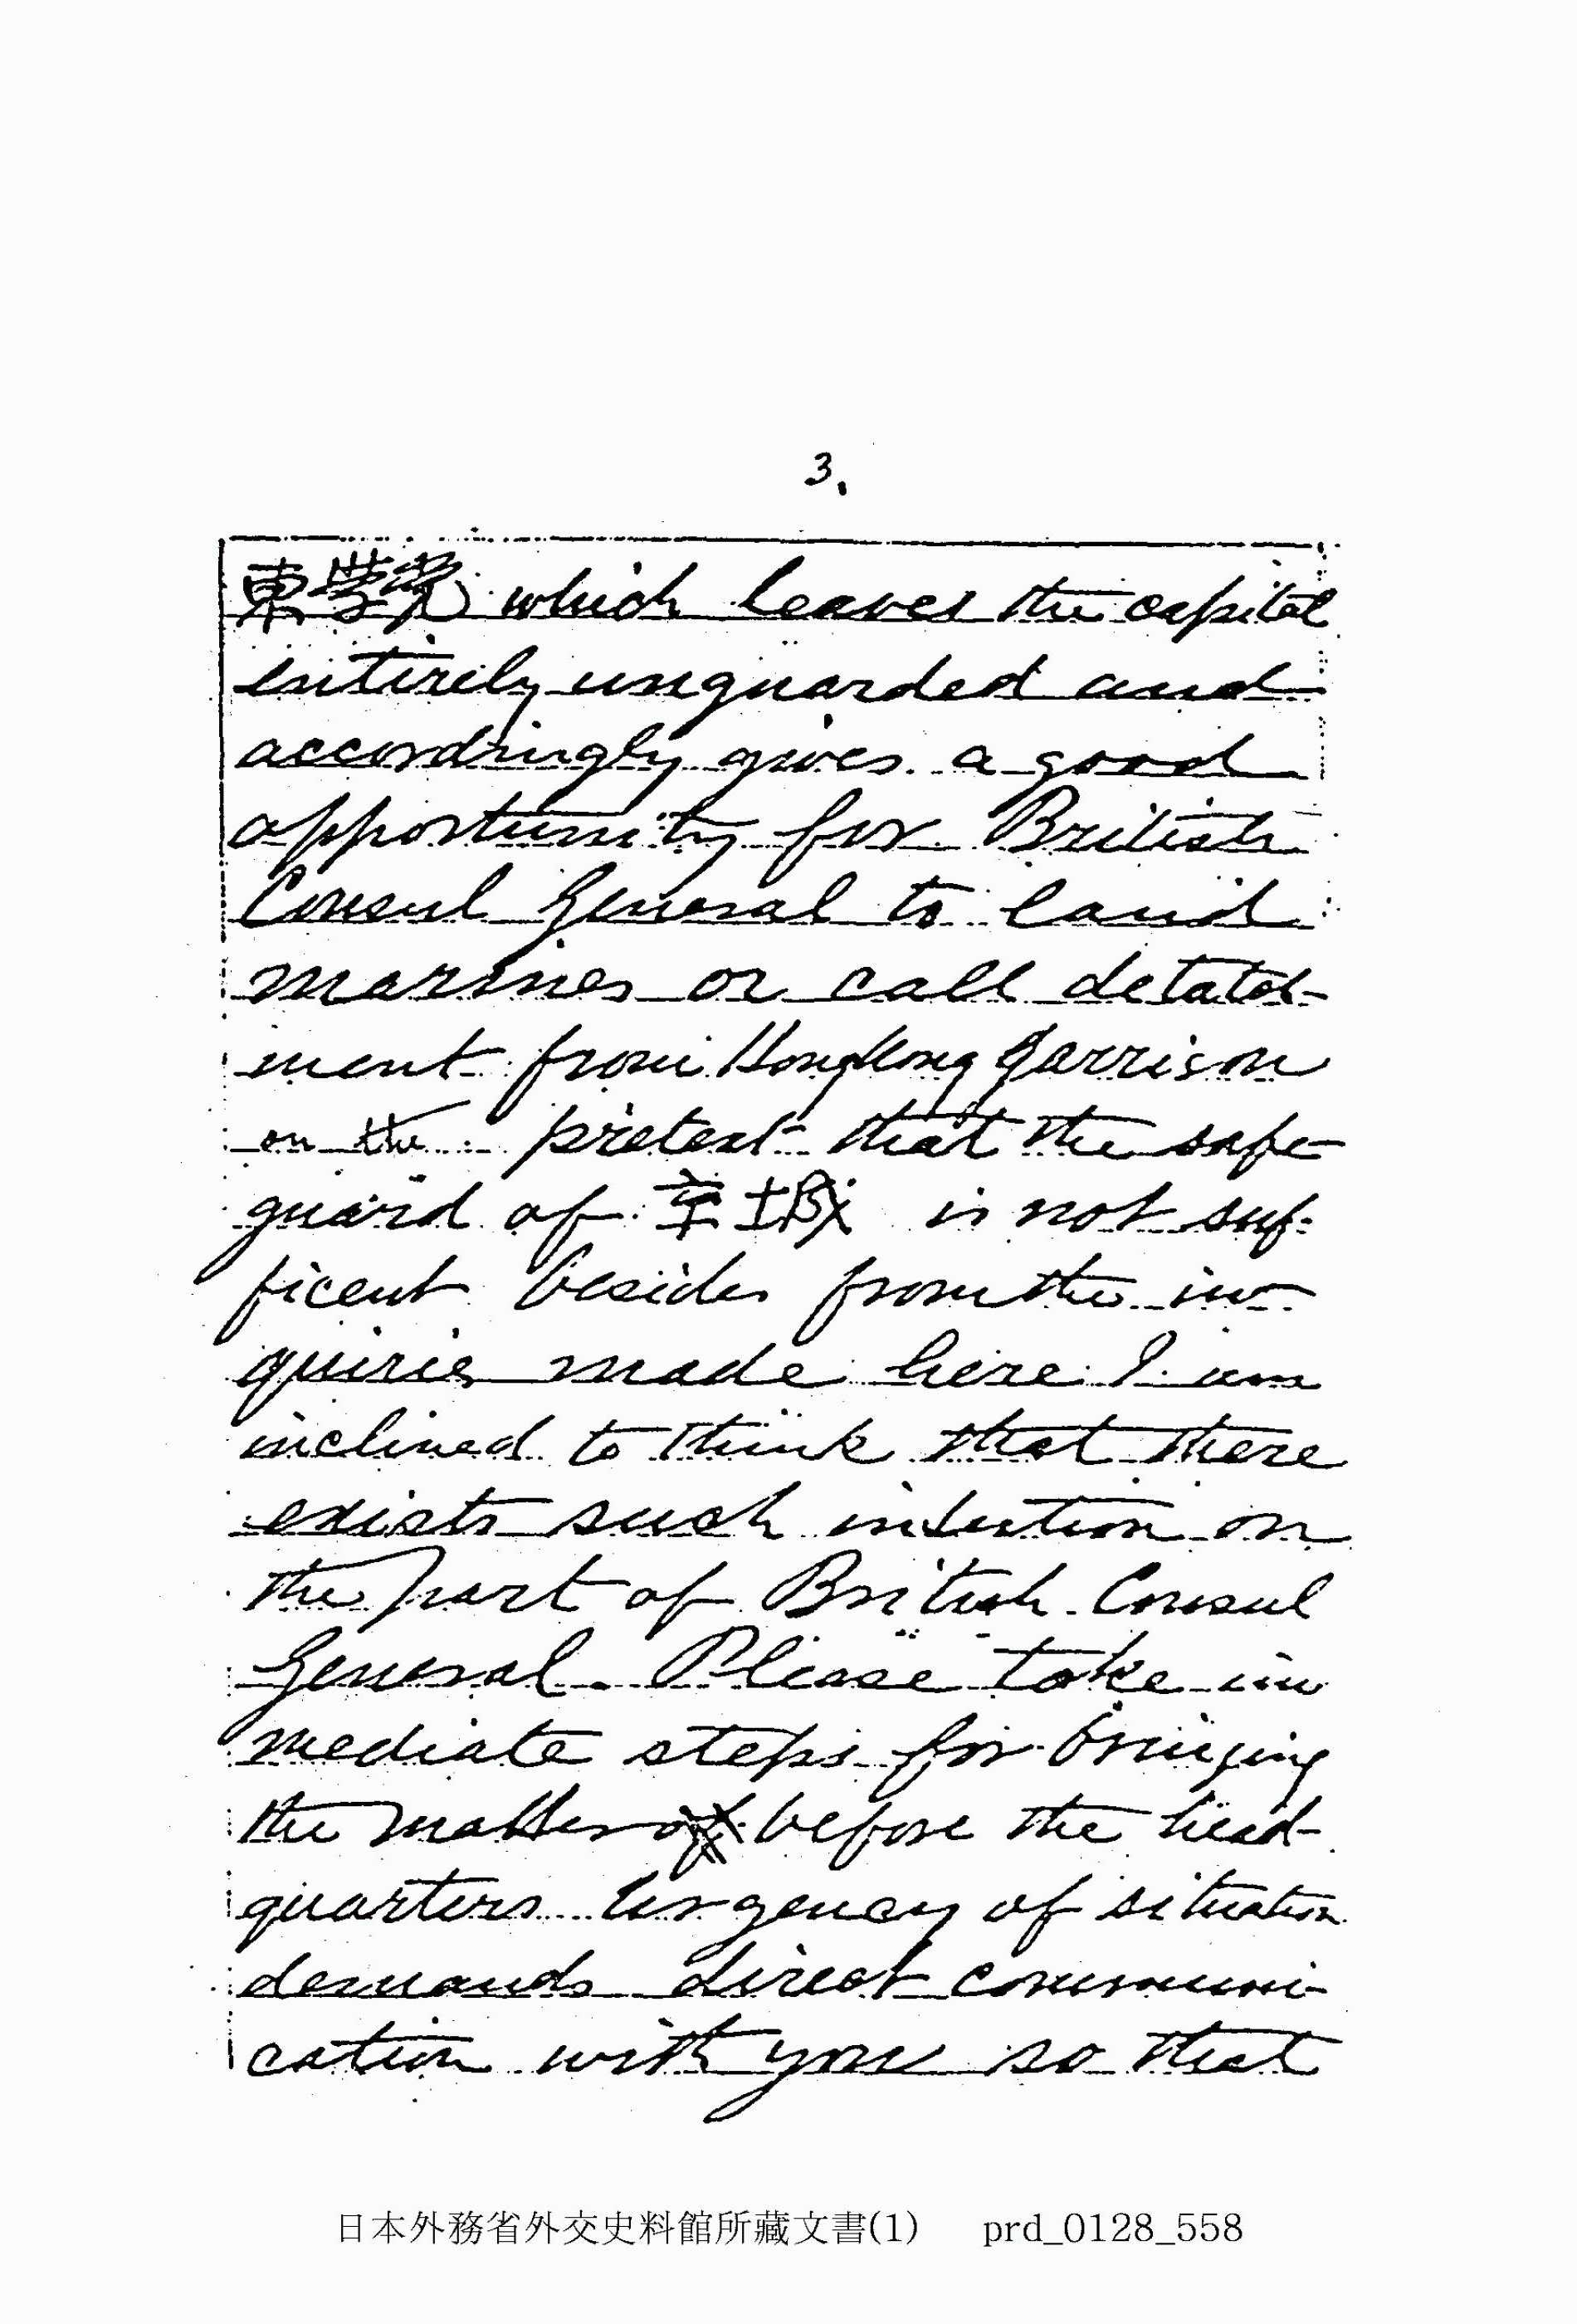 3.
東学党 which leaves the capital
entirely unguarded and
accordingly gives a good
opportunity for British
Consul General to land
marines or call detatch-
ment from Hongkong garrison
on the pretext that the safe-
guard of 京城 is not suf-
ficent besides from the in-
quiries made here I am
inclined to think that there
exists such intention on
the part of British Consul
General. Please take im
mediate steps for bringing
the matter of before the head-
quarters Urgency of situation
demands direct communi-
cation with you so that
日本外務省外交史料館所藏文書(1) prd_0128_558